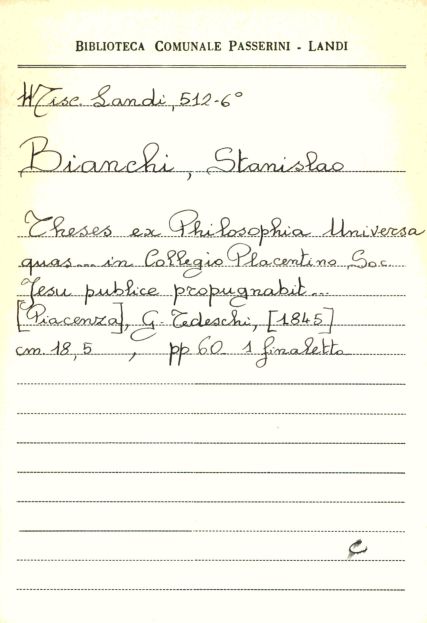 BIBLIOTECA COMUNALE PASSERINI - LANDI
Misc. Landi, 512-6°
Bianchi, Stanislao
Theses ex Philosophia Universa
quas... in Collegio Placentino Soc.
Jesu publice propugnabit...
[Piacenza], G. Tedeschi, [1845]
cm. 18,5 , pp 60. 1 finaletto
c